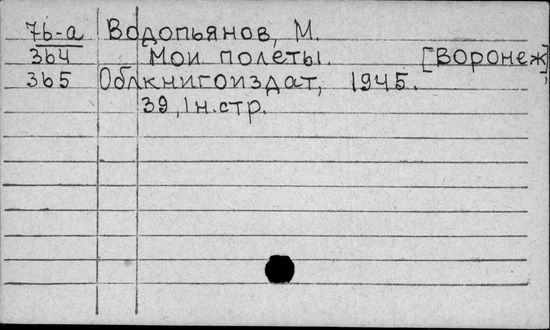 76-а Водопьянов, М.
364 Мои полеты. [Воронеж]
365 Облкнигоиздат, 1945.
39, 1н.стр.